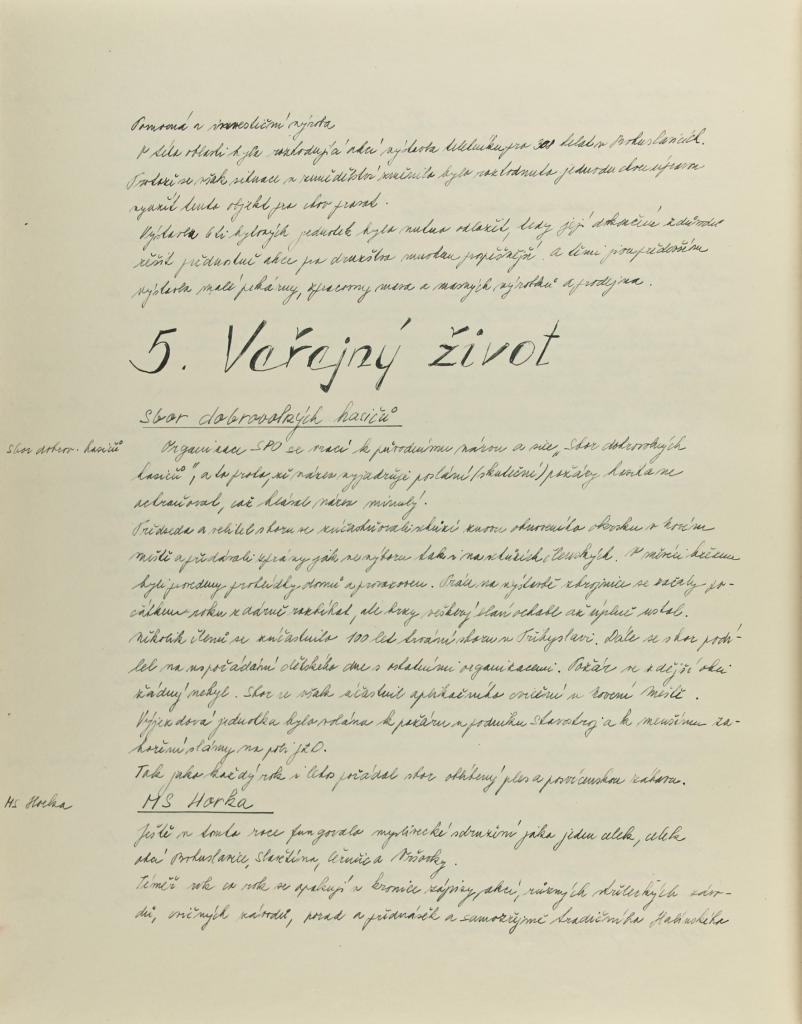 Pomocná a investiční výroba
V této oblasti byla rozhodující akcí výstavba teletníku pro 300 telat v Bohuslavicích.
Protože se však situace v zemědělství změnila bylo rozhodnuto jednodu chou úpravou
využít tento objekt pro chov prasat.
Výstavba 6ti bytových jednotek bylo nutno odložit, tedy její dokončení z důvodu
řešit přednostně akce pro družstvo mnohem prospěšnější. A těmi jsou především
výstavba malé pekárny, zpracovny masa a masných výrobků a prodejna.
5. Veřejný život
Sbor dobrovolných hasičů
Sbor dobrov. hasičů
Organizace SPO se vrací k původnímu názvu a sice „Sbor dobrovolných
hasičů", a to proto, že název vyjadřuje poslání (skutečné) požáry hasit a ne
ochraňovat, což hlásal název minulý.
Předseda a velitel sboru se zúčastňovali schůzí znovu obnoveného okrsku v Novém
Městě a předávali zprávy jak ve výboru tak i na schůzích členských. V měsíci březnu
byli provedeny prohlídky domů a provozoven. Práce na výstavbě zbrojnice se začaly po-
čátkem roku zdárně rozbíhat, ale brzy veškerý elán ochabl až úplně ustal.
Několik členů se zúčastnilo 100 let trvání sboru v Přibyslavi. Dále se sbor podí-
lel na uspořádání dětského dne s ostatními organizacemi. Požár se v zdejší obci
žádný nebyl. Sbor se však účastnil aplikačního cvičení v Novém Městě.
Výjezdová jednotka bylo volána k požáru v podniku Stavostroj a k menšímu za-
hoření slámy na poli JZD.
Tak jako každý rok i letos pořádal sbor oblíbený ples a posvícenskou zábavu.
MS Horka
MS Horka
Ještě v tomto roce fungovalo myslivecké sdružení jako jeden celek, celek
obcí Bohuslavice, Slavětína, Černčic a Vršovky.
Téměř rok co rok se opakují v kronice zápisy, akcí, různých střeleckých závo-
dů, cvičných závodů, porad a přednášek a samozřejmě tradičního Halínského